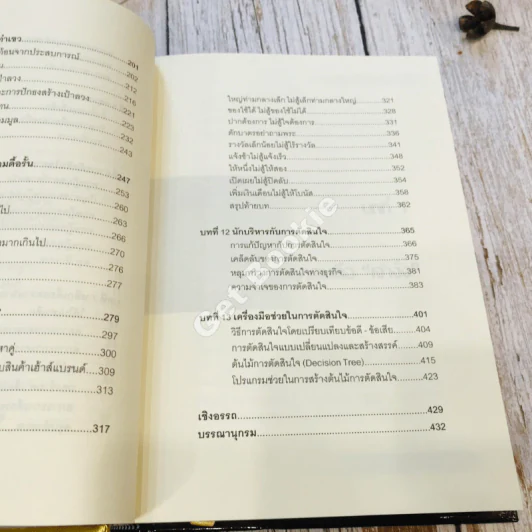 201
ท้อนจากประสบการณ์ 202
212
216
221
223
232
243
247
253
260
266
270
276
277
279
297
300
309
313
317
ใหญ่ท่ามกลางเล็ก ไม่สู้เล็กท่ามกลางใหญ่ 321
ของใช้ได้ ไม่สู้ของใช้ไม่ได้ 328
ปากต้องการ ไม่สู้ใจต้องการ 331
ตักบาตรอย่าถามพระ 336
รางวัลเล็กน้อยไม่สู้ไร้รางวัล 341
แจ้งช้าไม่สู้แจ้งเร็ว 348
ให้หนึ่งไม่สู้ให้สอง 351
เปิดเผยไม่สู้ปิดลับ 354
เพิ่มเงินเดือนไม่สู้ให้โบนัส 358
สรุปท้ายบท 362
บทที่ 12 นักบริหารกับการตัดสินใจ 365
การแก้ปัญหากับการตัดสินใจ 367
เคล็ดลับของการตัดสินใจ 375
หลุมพรางการตัดสินใจทางธุรกิจ 381
ความจำเจของการตัดสินใจ 383
บทที่ 13 เครื่องมือช่วยในการตัดสินใจ 401
วิธีการตัดสินใจโดยเปรียบเทียบข้อดี - ข้อเสีย 404
การตัดสินใจแบบเปลี่ยนแปลงและสร้างสรรค์ 409
ต้นไม้การตัดสินใจ (Decision Tree) 415
โปรแกรมช่วยในการสร้างต้นไม้การตัดสินใจ 423
เชิงอรรถ 429
บรรณานุกรม 432
Get Bookie